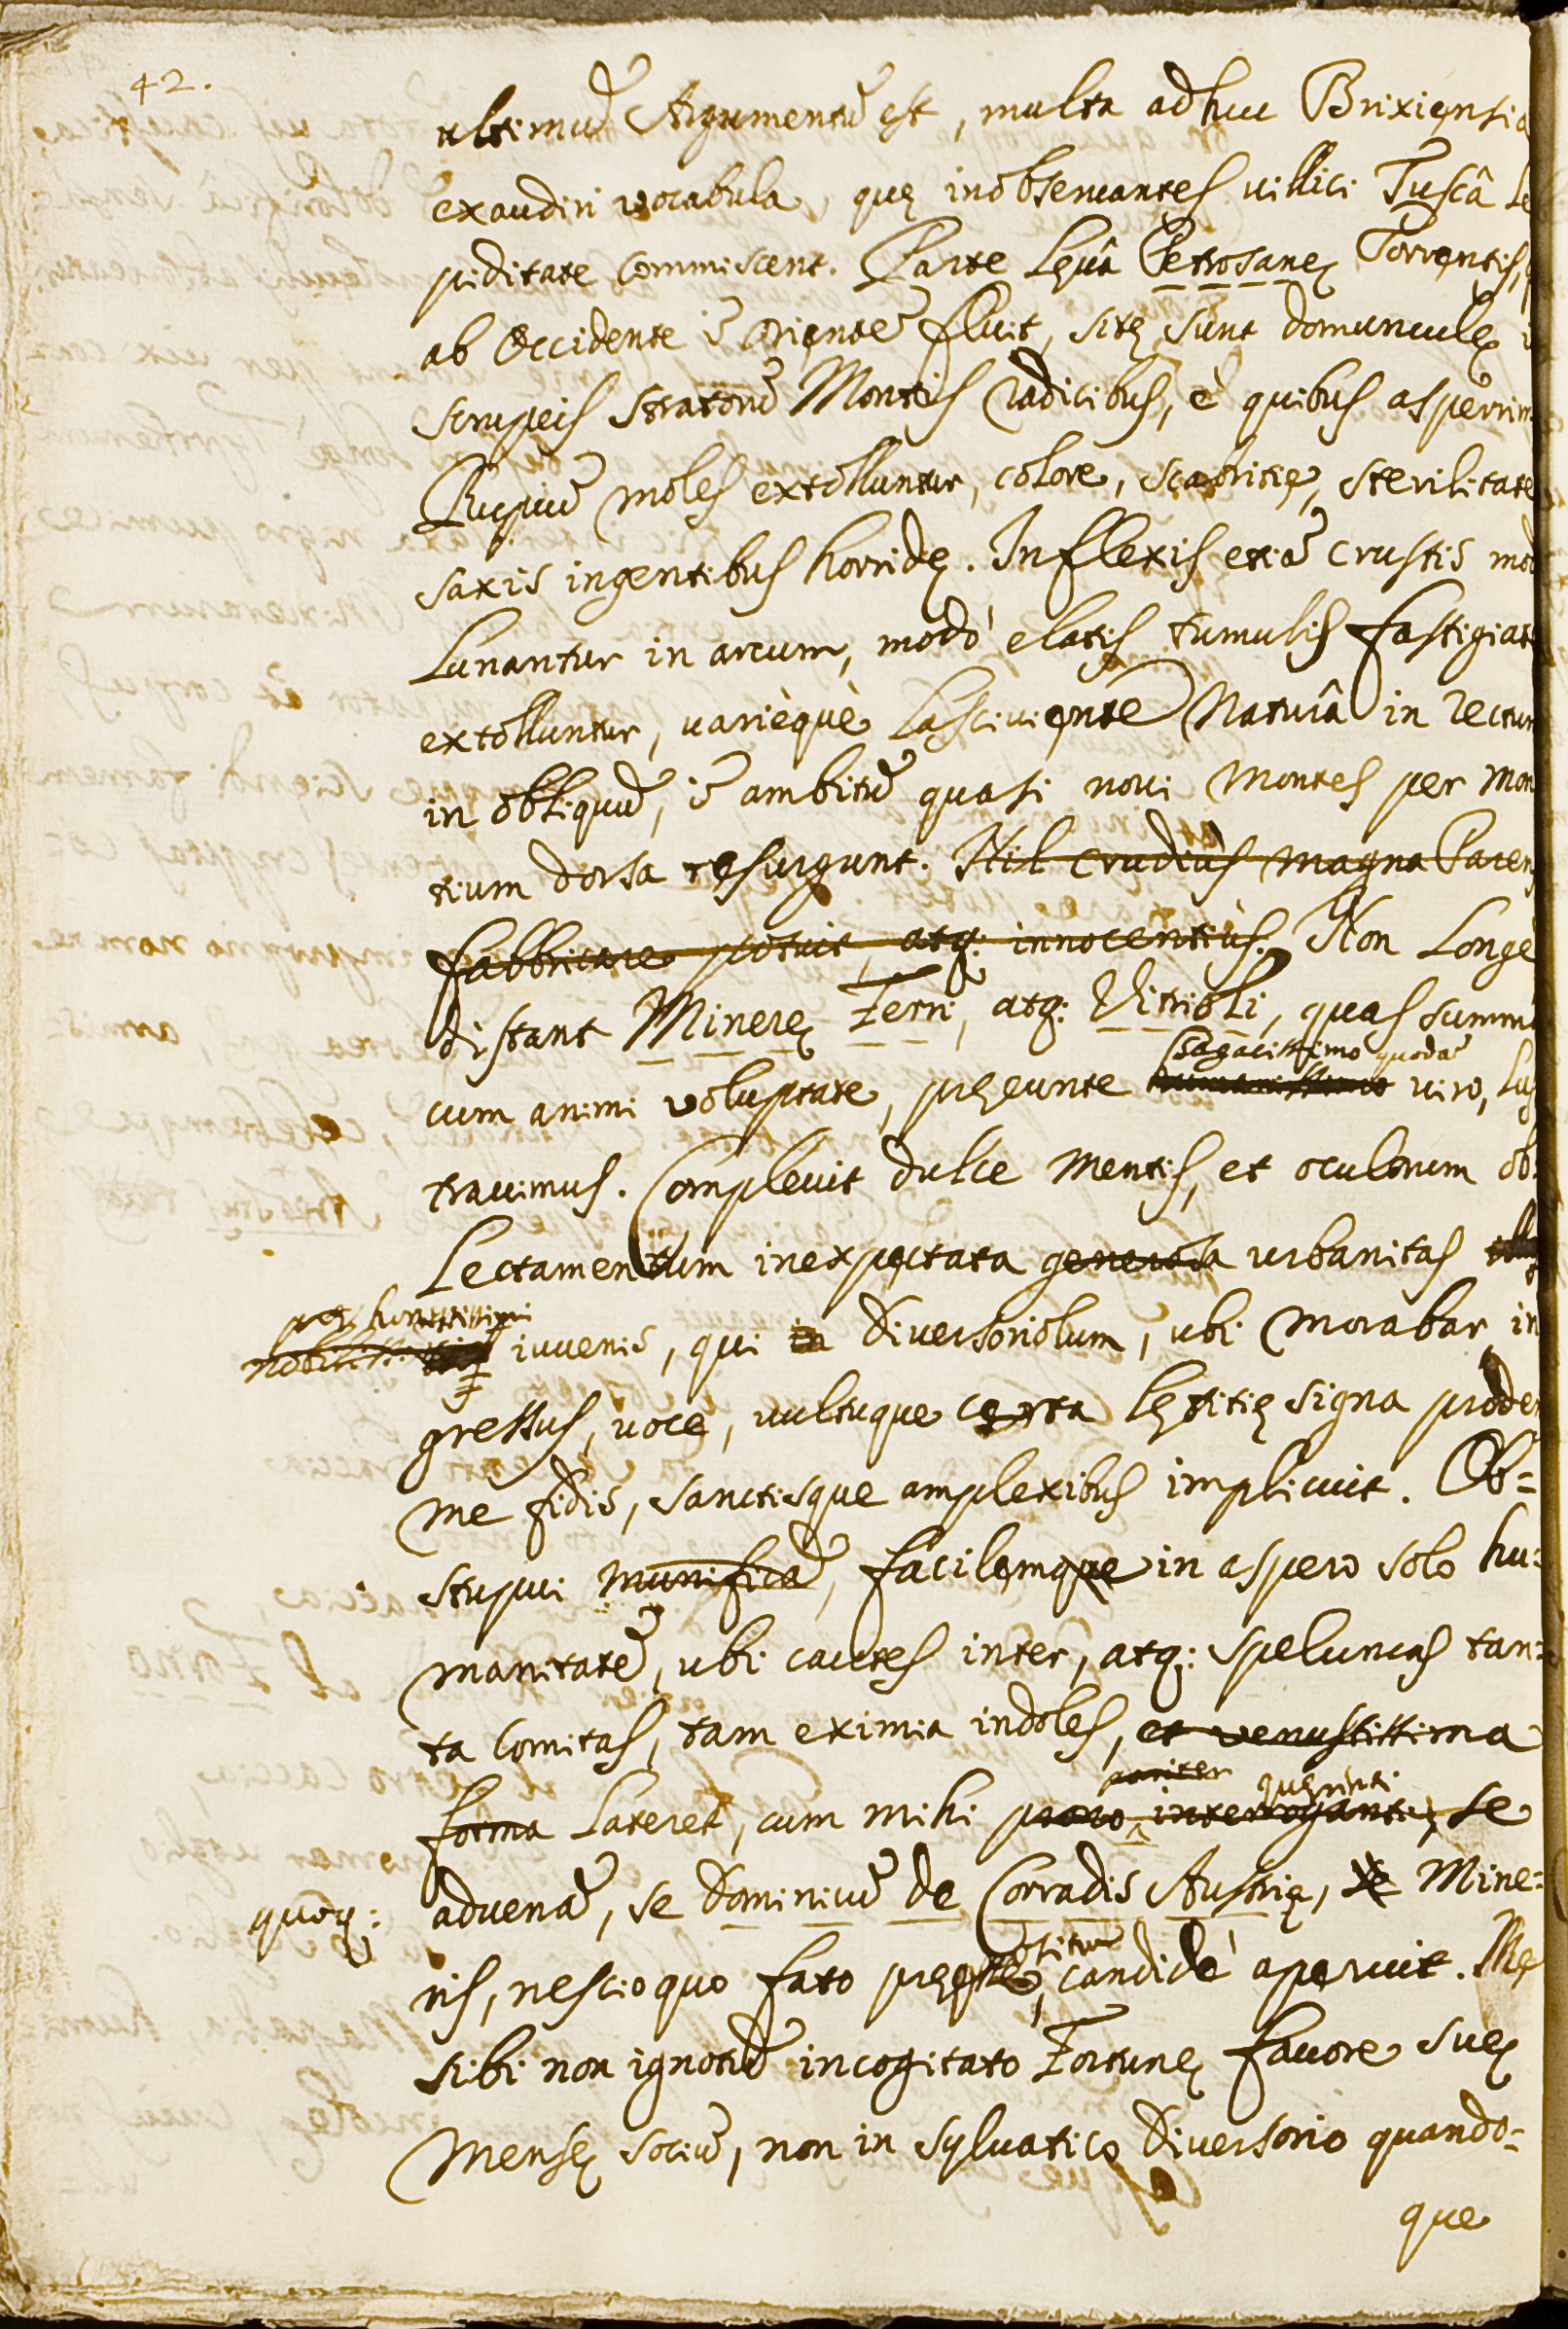 42.
ultimũ Argumentũ est, multa adhuc Brixiensia
exaudiri vocabula, quę inobseruantes uillici Tuscâ Le
piditate commiscent. Parte Lęuâ Petrosanę Torrentis,
ab Occidente ĩ Orientẽ fluit, sitę sunt domunculę
scrupeis stratorũ Montis radicibus, è quibus asperrim
Rupiũ moles extolluntur, colore, scabritie, sterilitate
saxis ingentibus horridę. Inflexis etiã crustis mod
Lunantur in arcum, modò elatis tumulis fastigiat
extolluntur, uarièquè Lasciuiente Naturâ in rectum
in obliquũ, ĩ ambitũ quasi noui Montes per Mon
tium dorsa resurgunt. Nil crudiùs magna Parens
fabbricare potuit, atq: innocentiùs. Non Longè
distant Minerę Ferri, atq: Vitrioli, quas summa
sagacissimo quodã
cum animi voluptate, pręeunte uiro, Lus
trauimus. Compleuit dulce Mentis, et oculorum ob
Lectamentum inexpectata generosa urbanitas
honestissimi
iuuenis, qui in Diuersoriolum, ubi morabar, in
gressus, uoce, uultuque certa lętitię signa proden
me fidis, sanctisque amplexibus implicuit. Ob=
stupui munificã, facilemque in aspero solo hu=
manitatẽ, ubi cautes inter, atq: speluncas tan=
ta comitas, tam eximia indoles, et venustissima
pariter quęrenti
forma Lateret, cum mihi porro interroganti, se
quoq: aduenã, se Dominicũ de Corradis Austrię, se Mine=
ositum
ris, nescio quo fato pręesse, candidè aperuit. Me
sibi non ignotũ incogitato Fortunę fauore suę
Mensę sociũ, non in syluatico Diuersorio quando=
que